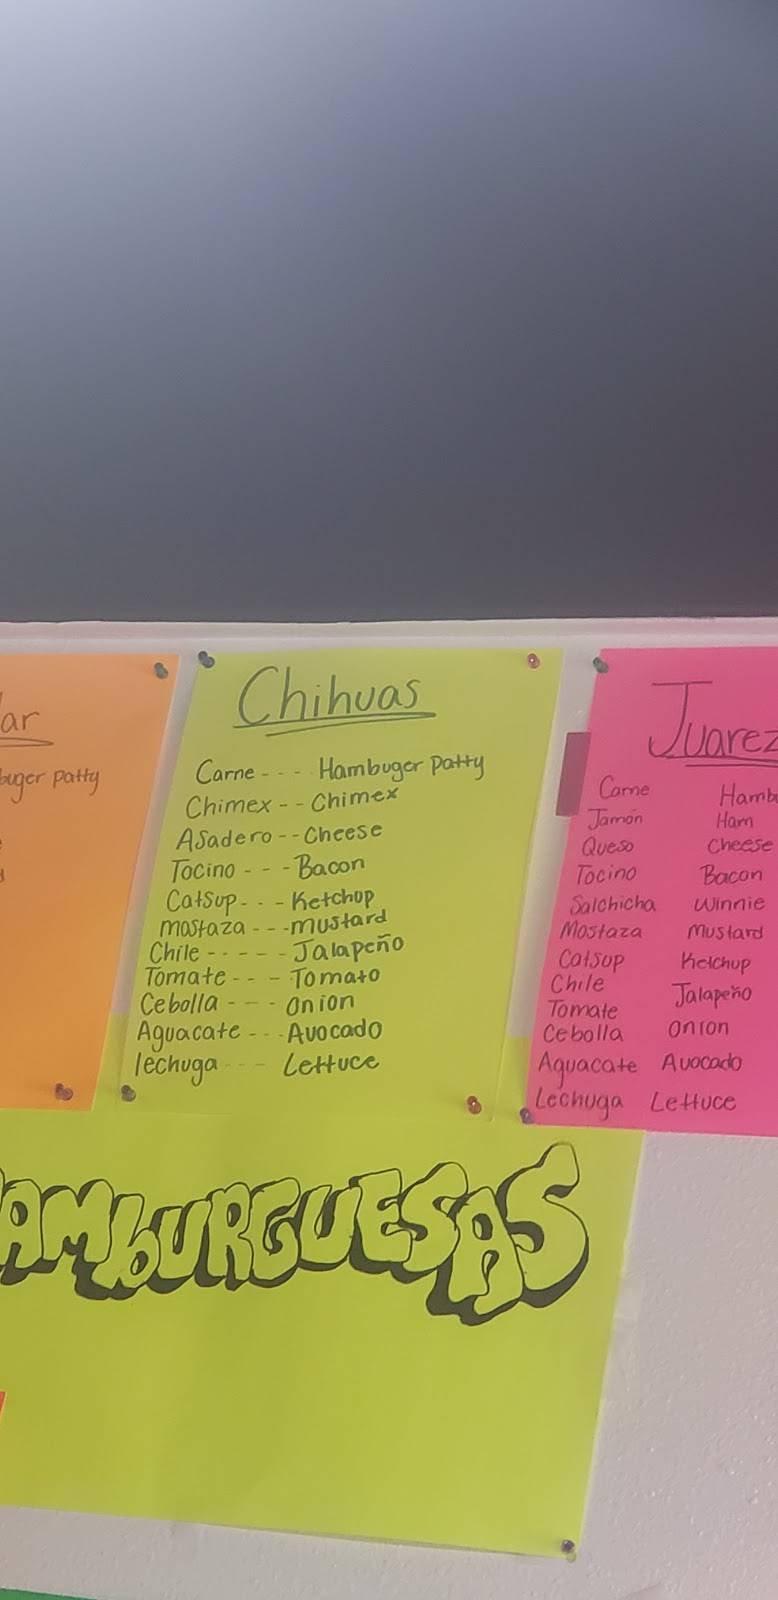 ar
buger patty
Chihuas
Carne - - - - Hambuger Patty
Chimex - - Chimex
Asadero - - Cheese
Tocino - - - Bacon
Catsup - - - Ketchup
mostaza - - - mustard
Chile - - - - - Jalapeño
Tomate - - - Tomato
Cebolla - - - onion
Aguacate - - - Avocado
lechuga - - - Lettuce
Juarez
Carne Hamb
Jamón Ham
Queso Cheese
Tocino Bacon
Salchicha Winnie
Mostaza Mustard
Catsup Ketchup
Chile Jalapeño
Tomate
Cebolla onion
Aguacate Avocado
Lechuga Lettuce
HAMbURGUESAS